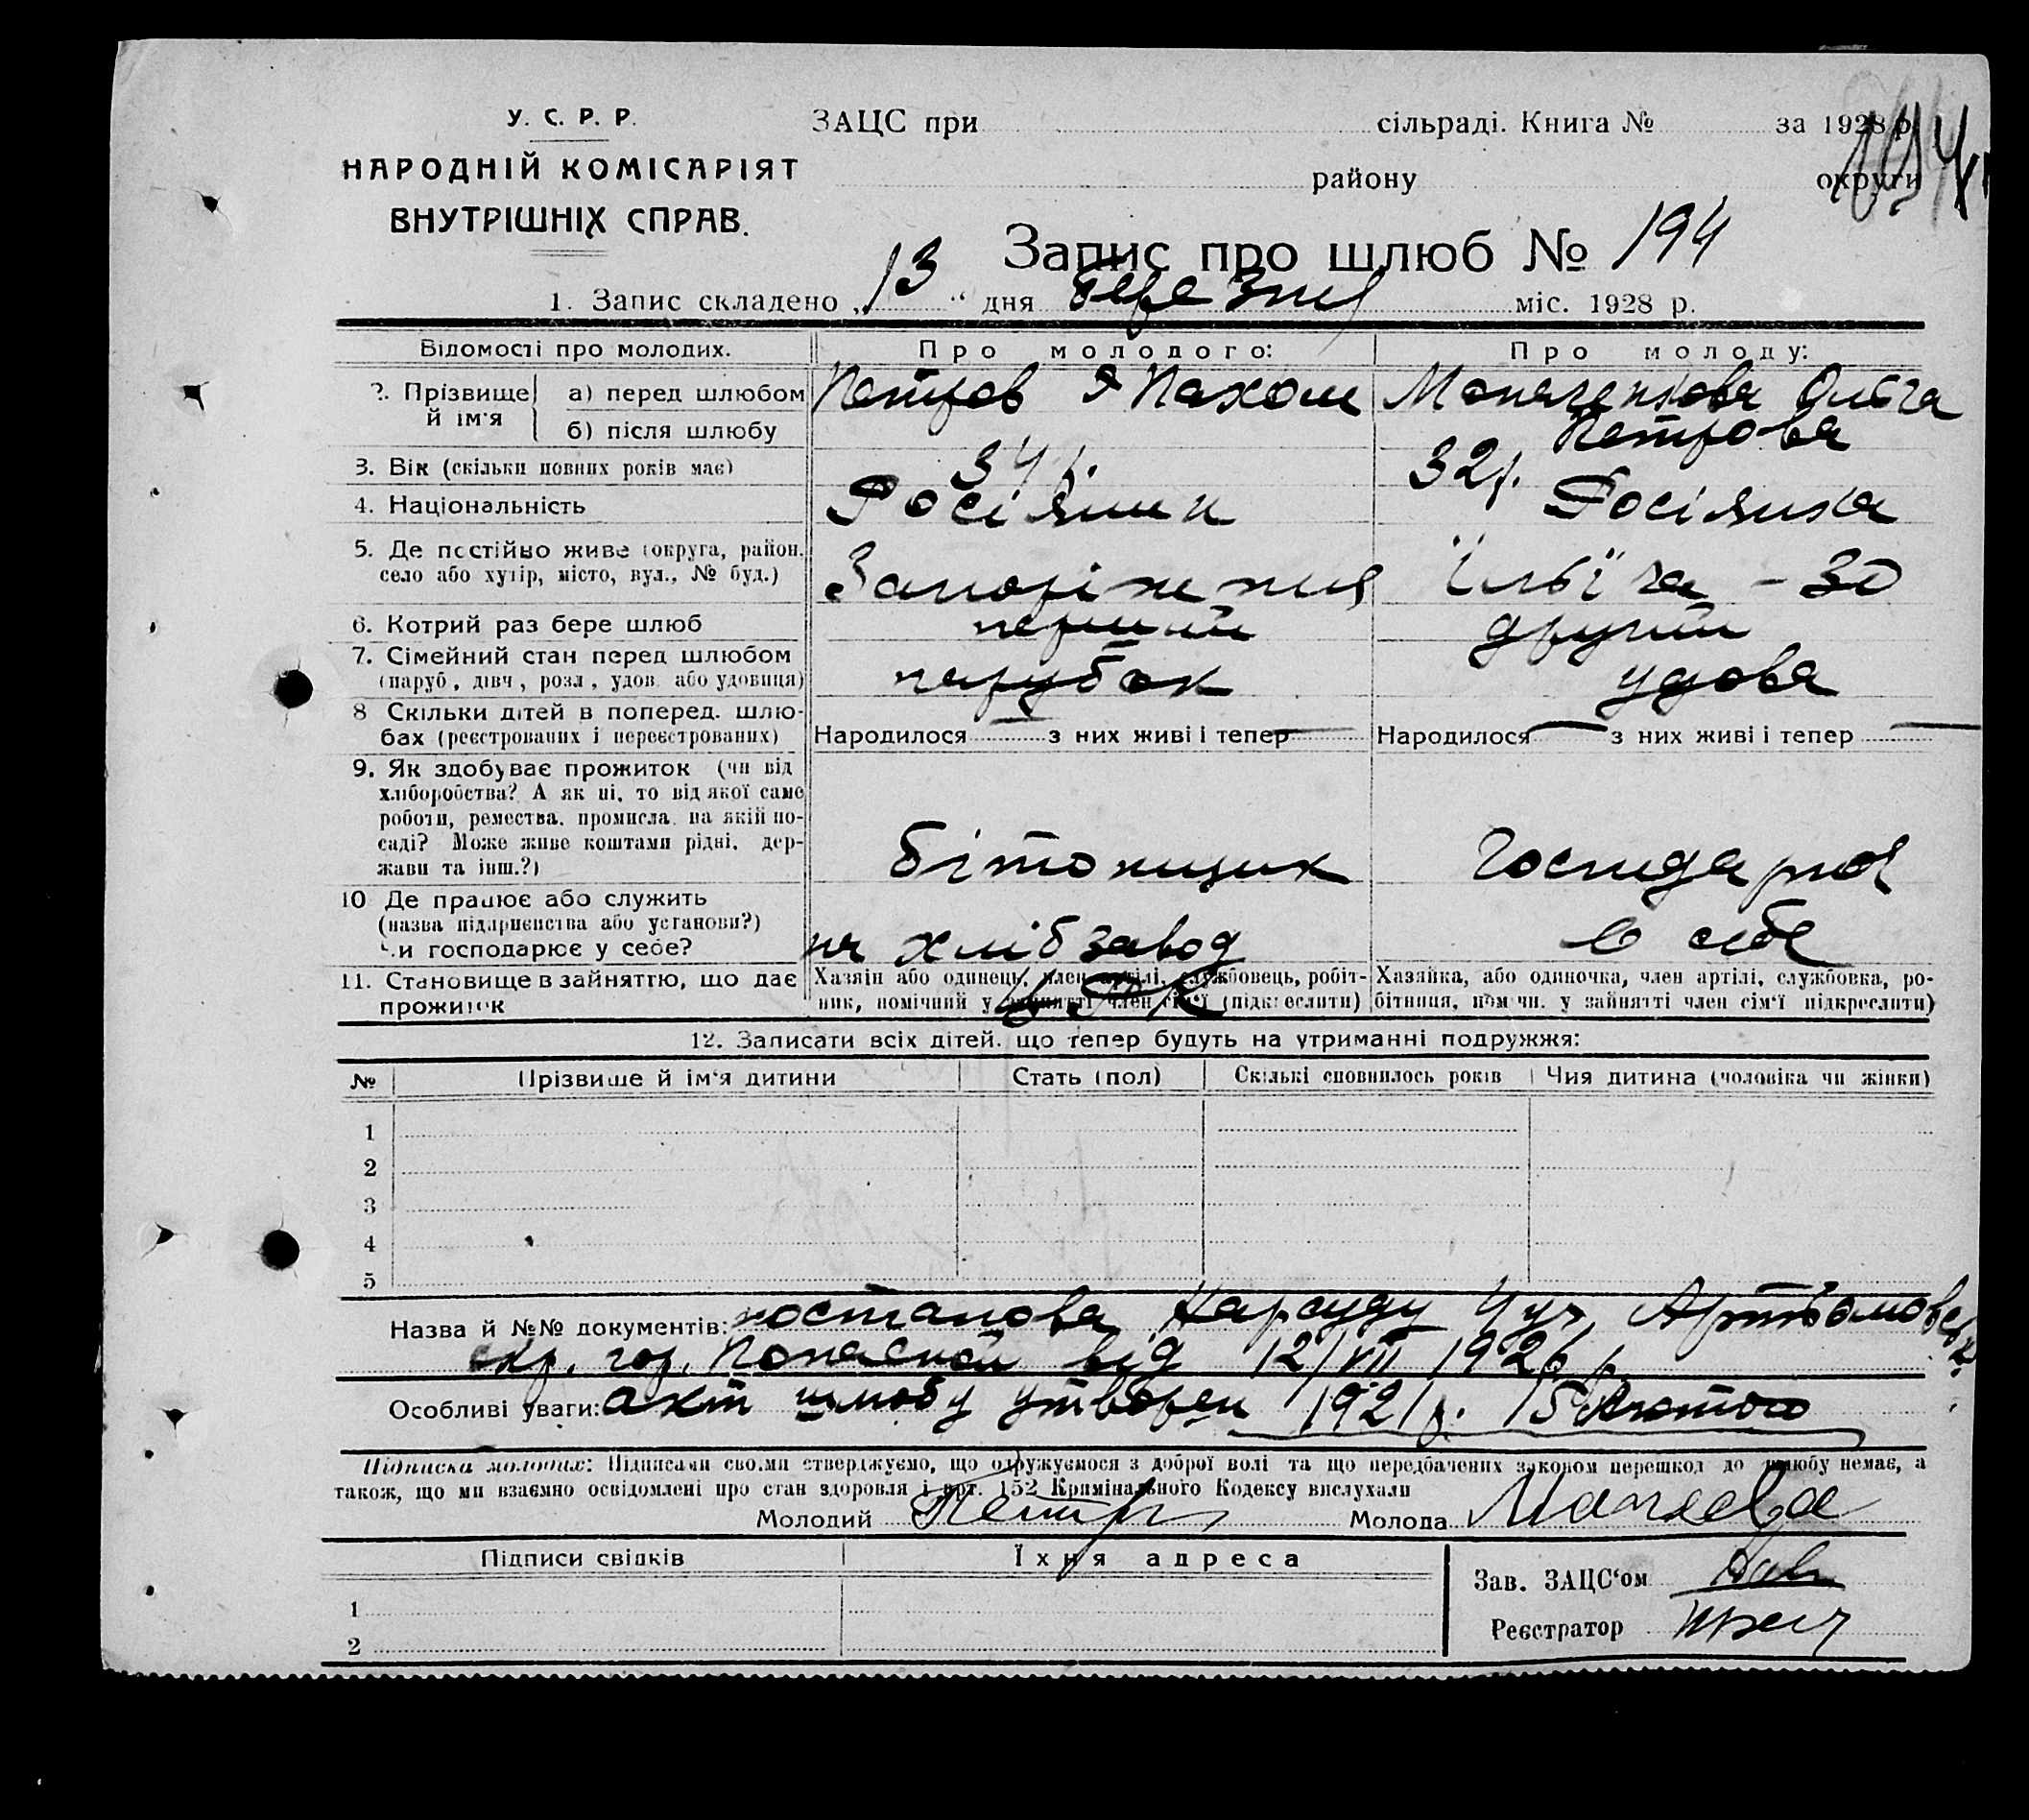 У. С. Р. Р.
НАРОДНІЙ КОМІСАРІЯТ
ВНУТРІШНІХ СПРАВ.
ЗАЦС при сільраді. Книга № за 1928 р.
району округи
Запис про шлюб № 194
1. Запис складено „13“ дня березня міс. 1928 р.
Відомості про молодих. Про молодого: Про молоду:
2. Прізвище й ім'я
а) перед шлюбом Петров Пахом Ольга
б) після шлюбу Петрова
3. Вік (скільки повних років має) 34 р. 32 р.
4. Національність Росіянин Росіянка
5. Де постійно живе (округа, район, село або хутір, місто, вул., № буд.) Запоріжжя Ільіча - 30
6. Котрий раз бере шлюб перший другий
7. Сімейний стан перед шлюбом (паруб., дівч., розл., удов. або удовиця) парубок удова
8 Скільки дітей в поперед. шлюбах (реєстрованих і нереєстрованих) Народилося — з них живі і тепер — Народилося — з них живі і тепер —
9. Як здобуває прожиток (чи від
хліборобства? А як ні, то від якої саме
роботи, ремества, промисла, на якій по-
саді? Може живе коштами рідні, дер-
жави та інш.?) бітонщик господарює
10 Де працює або служить
(назва підприємства або установи?)
Чи господарює у себе? на хлібзавод в себе
11. Становище в зайняттю, що дає прожиток
Хазяїн або одинець, член артілі, службовець, робіт-
ник, помічний у зайнятті член сім'ї (підкреслити)
Хазяйка, або одиночка, член артілі, службовка, ро-
бітниця, помічн. у зайнятті член сім'ї підкреслити)
12. Записати всіх дітей, що тепер будуть на утриманні подружжя:
№ Прізвище й ім'я дитини Стать (пол) Скількі сповнилось років Чия дитина (чоловіка чи жінки)
1
2
3
4
5
Назва й №№ документів: постанова Нарсуду 4 уч. Артьомовськ.
окр. гор. Попасной від 12/VII 1926 р.
Особливі уваги: акт шлюбу утворен 1921 р. 15 Лютого
Підписка молодих: Підписами своїми стверджуємо, що одружуємося з доброї волі та що передбачених законом перешкод до шлюбу немає, а
також, що ми взаємно освідомлені про стан здоровля і арт. 152 Кримінального Кодексу вислухали
Молодий Молода
Підписи свідків Їхня адреса
Зав. ЗАЦС'ом
Реєстратор
1
2